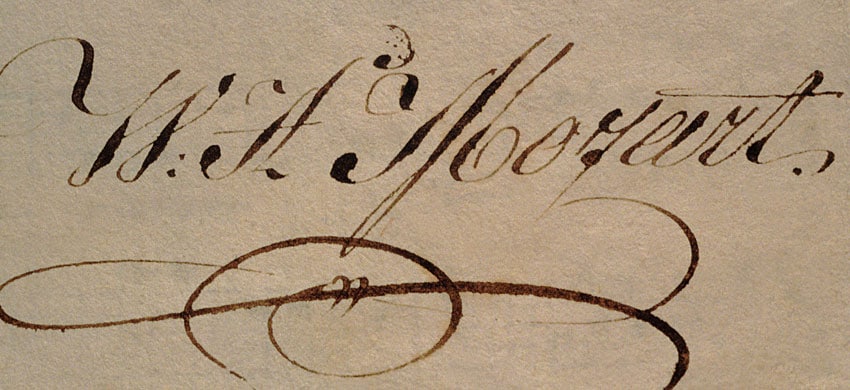 W: A Mozart.